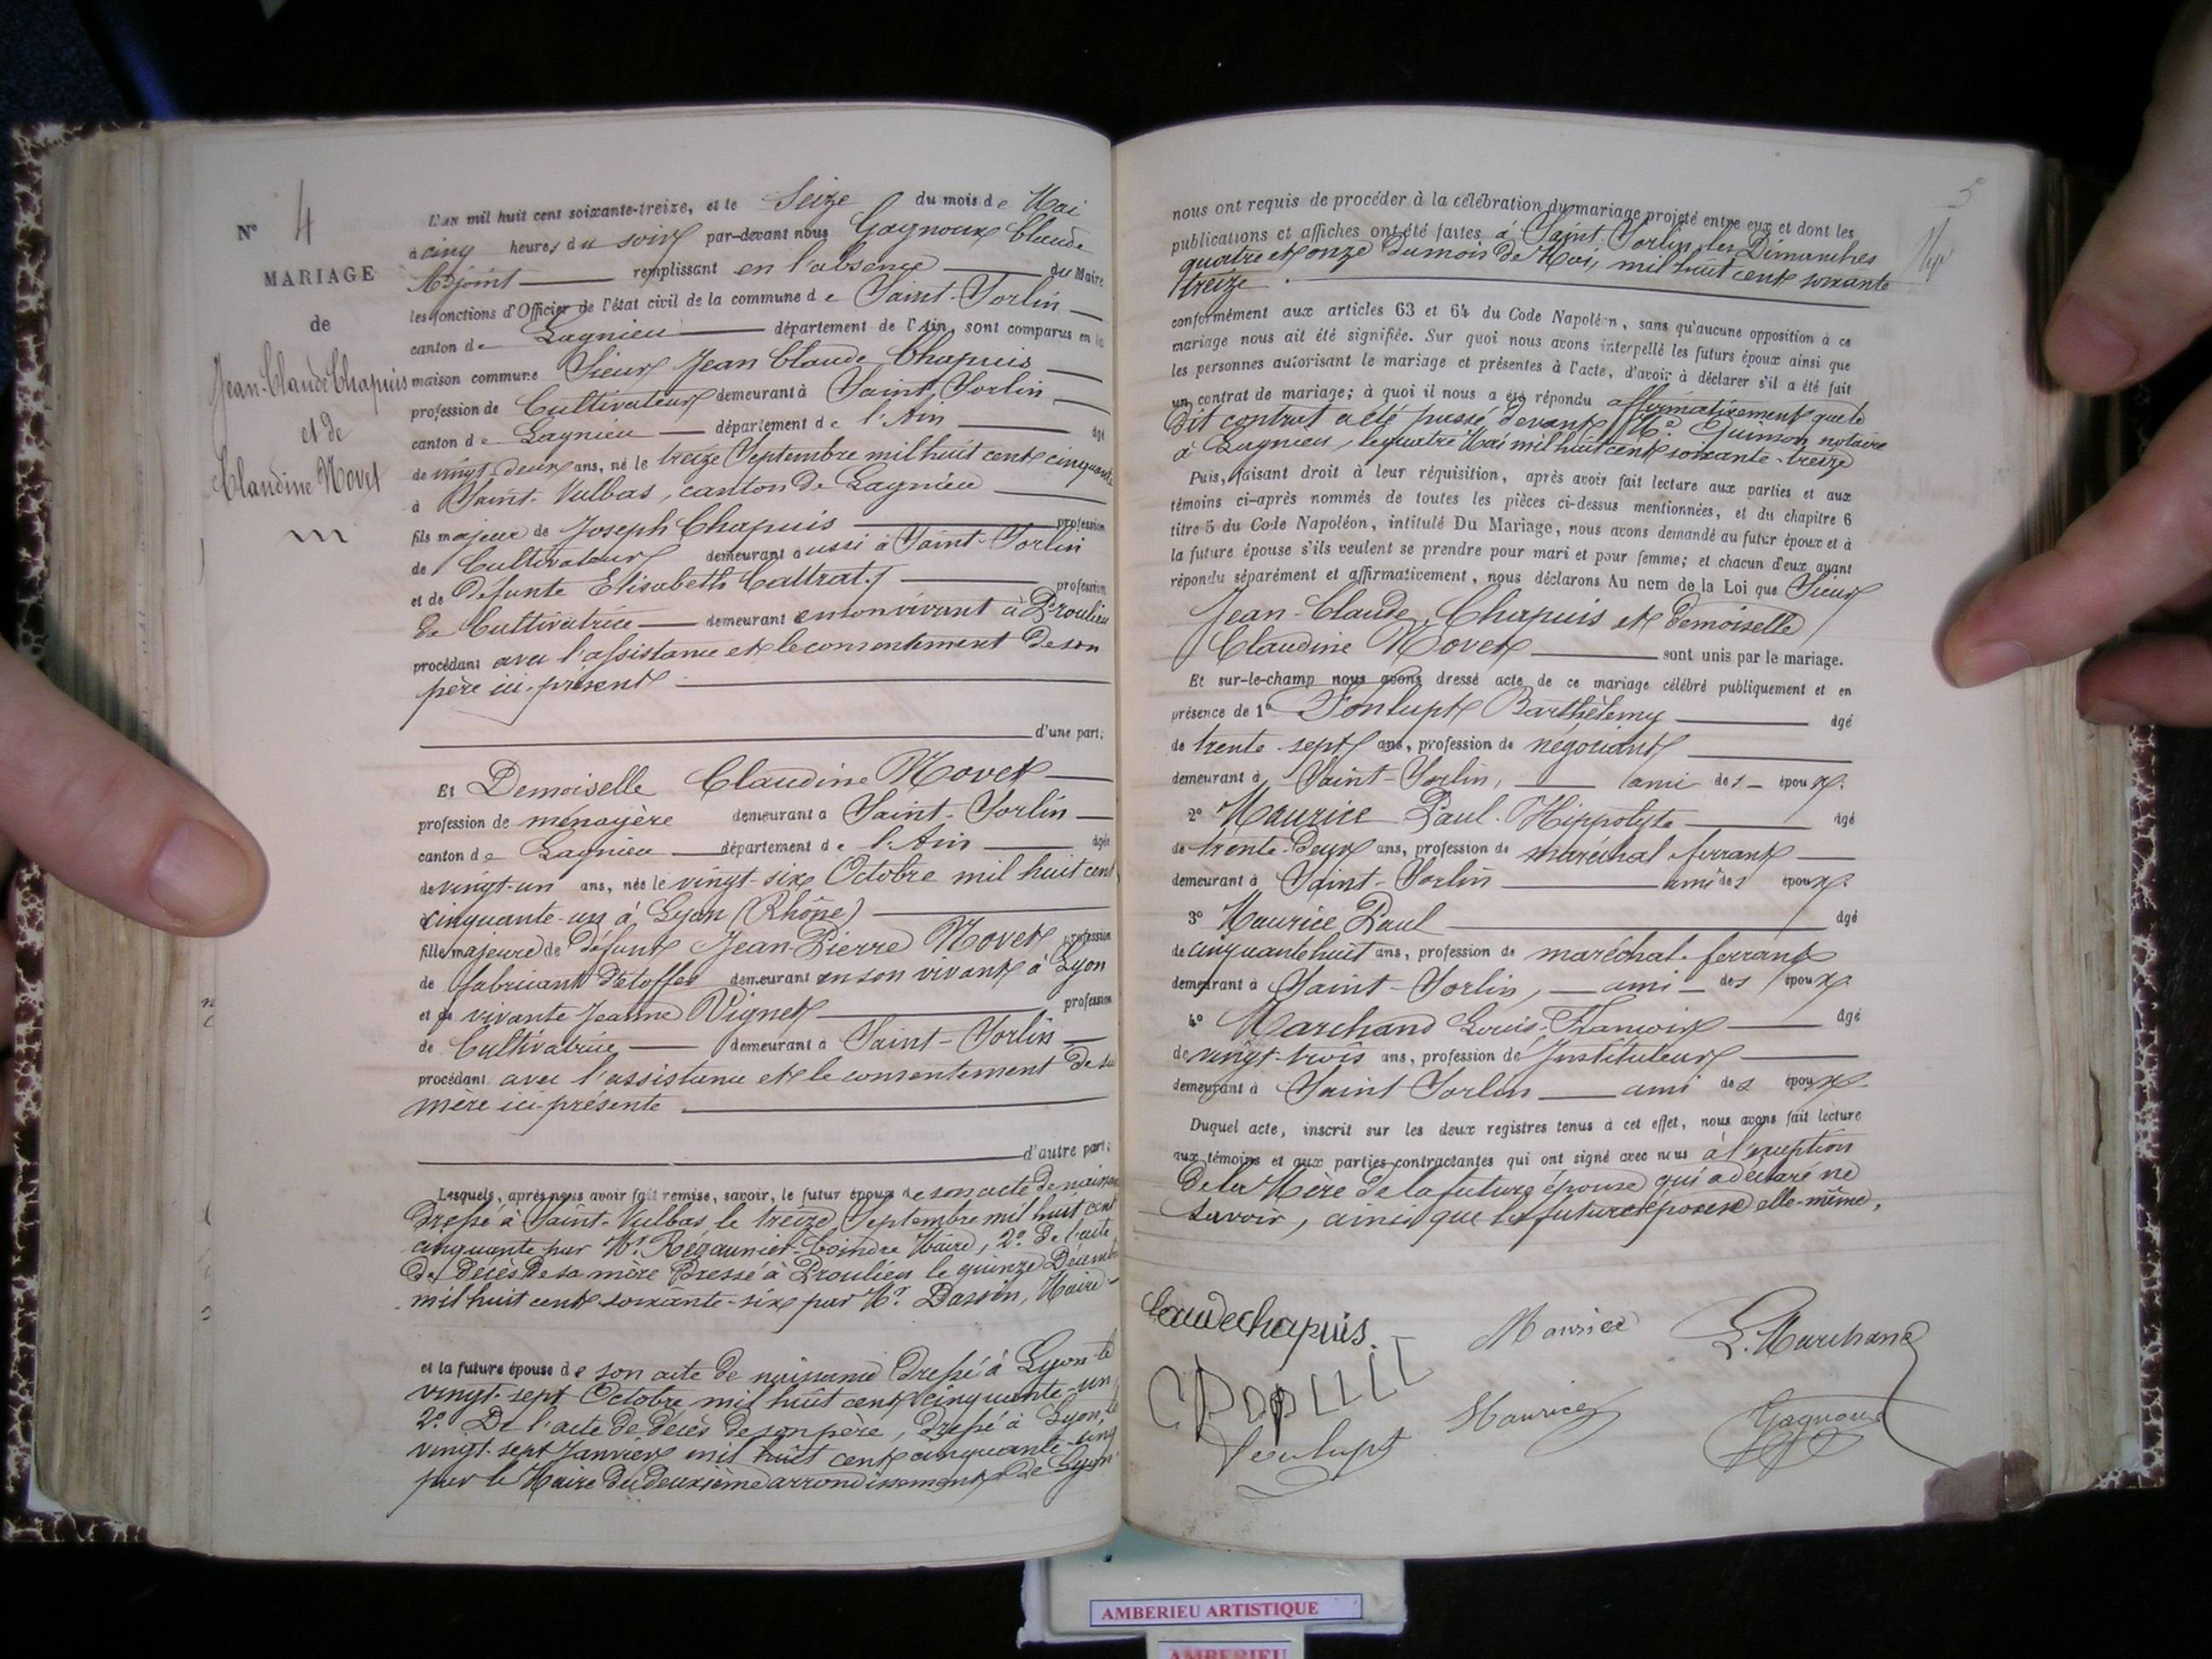 N° 4
MARIAGE
de
Jean-Claude Chapuis
et de
Claudine Novet
L'AN mil huit cent soixante-treize, et le Seize du mois de Mai
à cinq heures du soir par-devant nous Gagnoux Claude
Adjoint remplissant en l'absence du Maire
les fonctions d'Officier de l'état civil de la commune de Saint-Sorlin
canton de Lagnieu département de l'Ain, sont comparus en la
maison commune Sieur Jean Claude Chapuis
profession de Cultivateur demeurant à Saint Sorlin
canton de Lagnieu département de l'Ain âgé
de vingt-deux ans, né le treize Septembre mil huit cent cinquante
à Saint-Vulbas, canton de Lagnieu
fils majeur de Joseph Chapuis profession
de Cultivateur demeurant aussi à Saint-Sorlin
et de défunte Elisabeth Cattrat profession
de Cultivatrice demeurant en son vivant à Proulieu
procédant avec l'assistance et le consentement de son
père ici-présent
d'une part;
Et Demoiselle Claudine Novet
profession de ménagère demeurant à Saint-Sorlin
canton de Lagnieu département de l'Ain âgée
de vingt-un ans, née le vingt-six Octobre mil huit cent
cinquante-un à Lyon (Rhône)
fille majeure de défunt Jean-Pierre Novet profession
de fabricant d'étoffes demeurant en son vivant à Lyon
et de vivante Jeanne Vignet profession
de Cultivatrice demeurant à Saint-Sorlin
procédant avec l'assistance et le consentement de sa
mère ici-présente
d'autre part;
Lesquels, après nous avoir fait remise, savoir, le futur époux de son acte de naissance
dressé à Saint-Vulbas le treize Septembre mil huit cent
cinquante par Mr. Régaunier-Coindre Maire, 2° De l'acte
de décès de sa mère dressé à Proulieu le quinze Décembre
mil huit cent soixante-six par Mr. Dassin, Maire
et la future épouse de son acte de naissance dressé à Lyon le
vingt-sept Octobre mil huit cent cinquante-un
2° De l'acte de décès de son père, dressé à Lyon, le
vingt-sept Janvier mil huit cent cinquante-cinq
par le Maire du deuxième arrondissement de Lyon
5
nous ont requis de procéder à la célébration du mariage projeté entre eux et dont les
publications et affiches ont été faites à Saint-Sorlin les Dimanches
quatre et onze du mois de Mai, mil huit cent soixante
treize
conformément aux articles 63 et 64 du Code Napoléon, sans qu'aucune opposition à ce
mariage nous ait été signifiée. Sur quoi nous avons interpellé les futurs époux ainsi que
les personnes autorisant le mariage et présentes à l'acte, d'avoir à déclarer s'il a été fait
un contrat de mariage; à quoi il nous a été répondu affirmativement que le
dit contrat a été passé devant Me. Quinson notaire
à Lagnieu, le quatre Mai mil huit cent soixante-treize
Puis, faisant droit à leur réquisition, après avoir fait lecture aux parties et aux
témoins ci-après nommés de toutes les pièces ci-dessus mentionnées, et du chapitre 6
titre 5 du Code Napoléon, intitulé Du Mariage, nous avons demandé au futur époux et à
la future épouse s'ils veulent se prendre pour mari et pour femme; et chacun d'eux ayant
répondu séparément et affirmativement, nous déclarons Au nom de la Loi que Sieur
Jean-Claude Chapuis et demoiselle
Claudine Novet sont unis par le mariage.
Et sur-le-champ nous avons dressé acte de ce mariage célébré publiquement et en
présence de 1° Fonlupt Barthélemy âgé
de trente-sept ans, profession de négociant
demeurant à Saint-Sorlin, ami des époux.
2° Maurice Paul-Hippolyte âgé
de trente-deux ans, profession de maréchal-ferrant
demeurant à Saint-Sorlin ami des époux.
3° Maurice Paul âgé
de cinquante huit ans, profession de maréchal-ferrant
demeurant à Saint-Sorlin, ami des époux
4° Marchand Louis-François âgé
de vingt-trois ans, profession de Instituteur
demeurant à Saint Sorlin ami des époux
Duquel acte, inscrit sur les deux registres tenus à cet effet, nous avons fait lecture
aux témoins et aux parties contractantes qui ont signé avec nous à l'exception
de la Mère de la future épouse qui a déclaré ne
savoir, ainsi que la future épouse elle-même.
Claude chapuis. Maurice L. Marchand
Fonlupt Maurice Gagnoux
AMBERIEU ARTISTIQUE
AMBERIEU